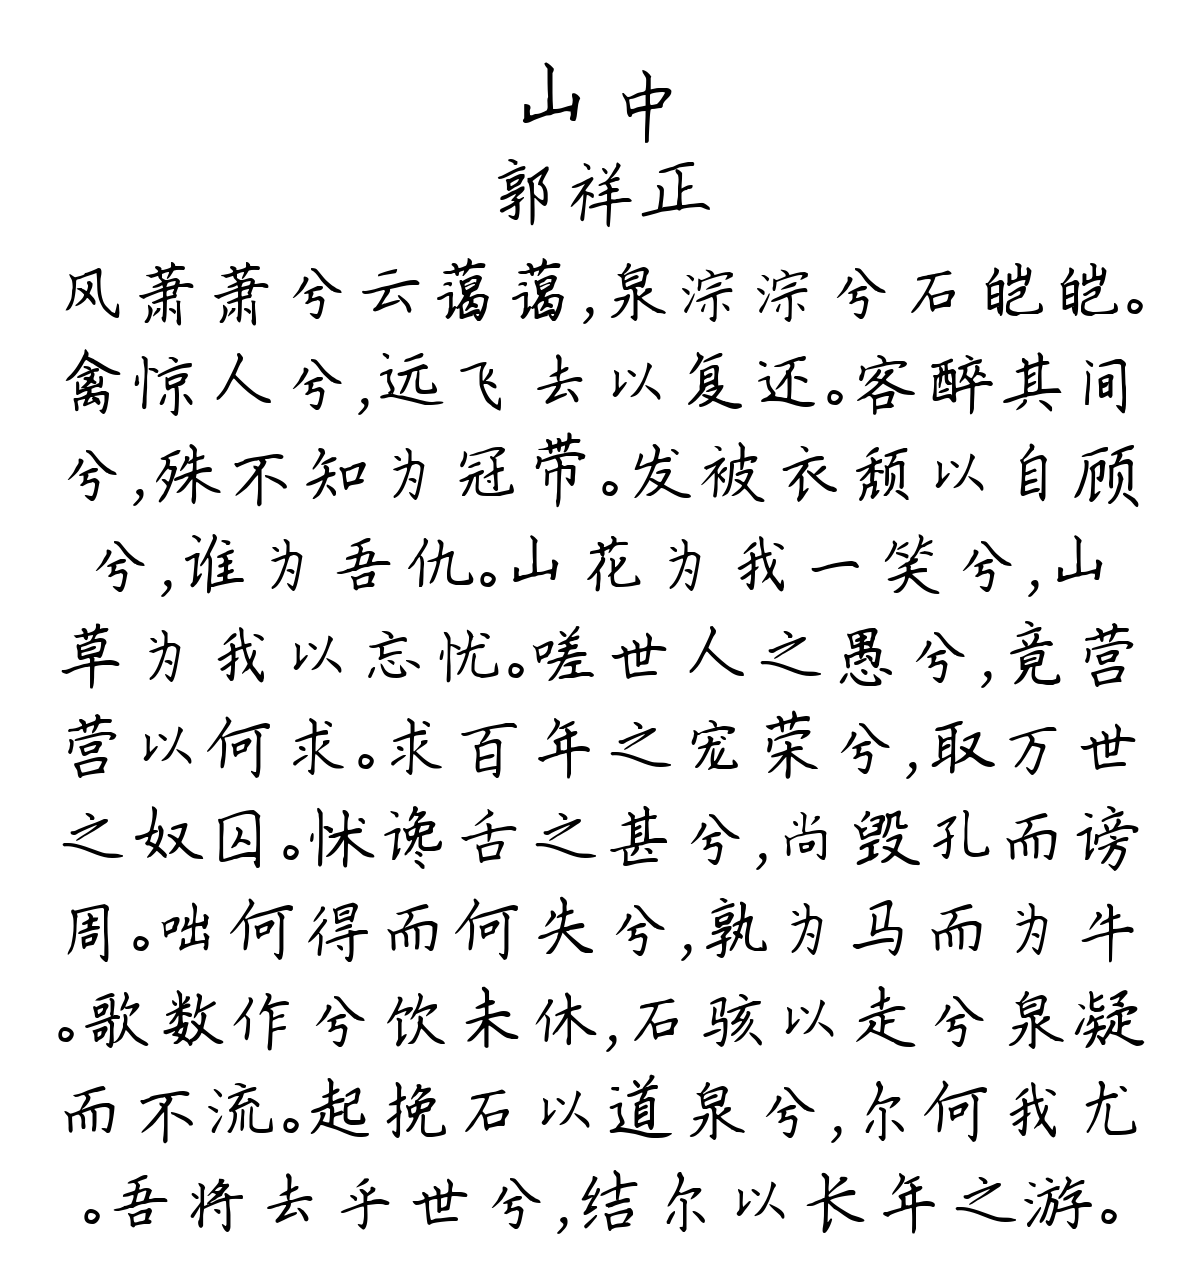 山中
郭祥正
风萧萧兮云蔼蔼,泉淙淙兮石皑皑。
禽惊人兮,远飞去以复还。客醉其间
兮,殊不知为冠带。发被衣颓以自顾
兮,谁为吾仇。山花为我一笑兮,山
草为我以忘忧。嗟世人之愚兮,竟营
营以何求。求百年之宠荣兮,取万世
之奴囚。怵谗舌之甚兮,尚毁孔而谤
周。咄何得而何失兮,孰为马而为牛
。歌数作兮饮未休,石骇以走兮泉凝
而不流。起挽石以道泉兮,尔何我尤
。吾将去乎世兮,结尔以长年之游。